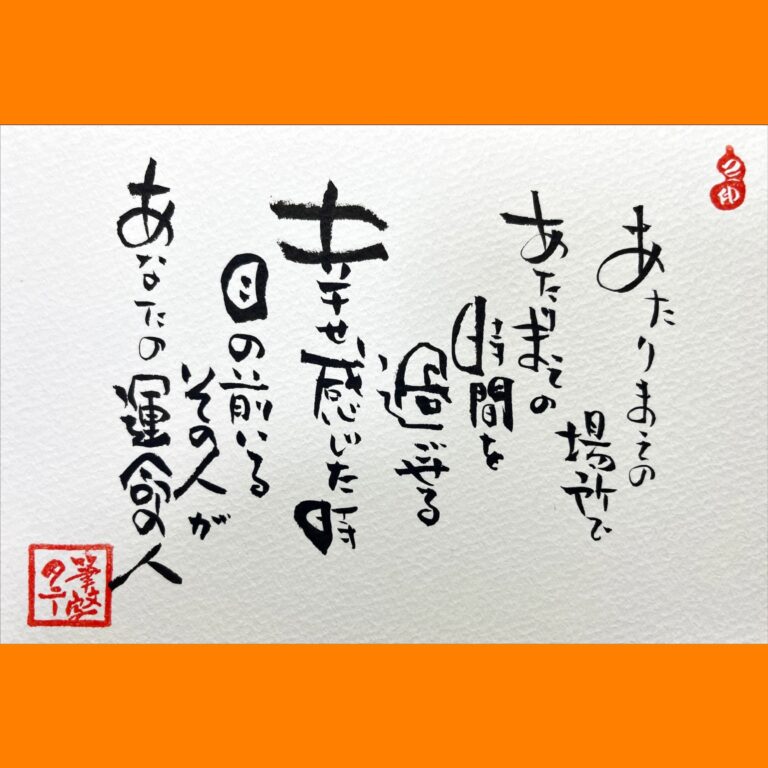 あたりまえの
場所で
あたりまえの
時間を
過ごせる
幸せ感じた時
目の前いる
その人が
あなたの運命の人